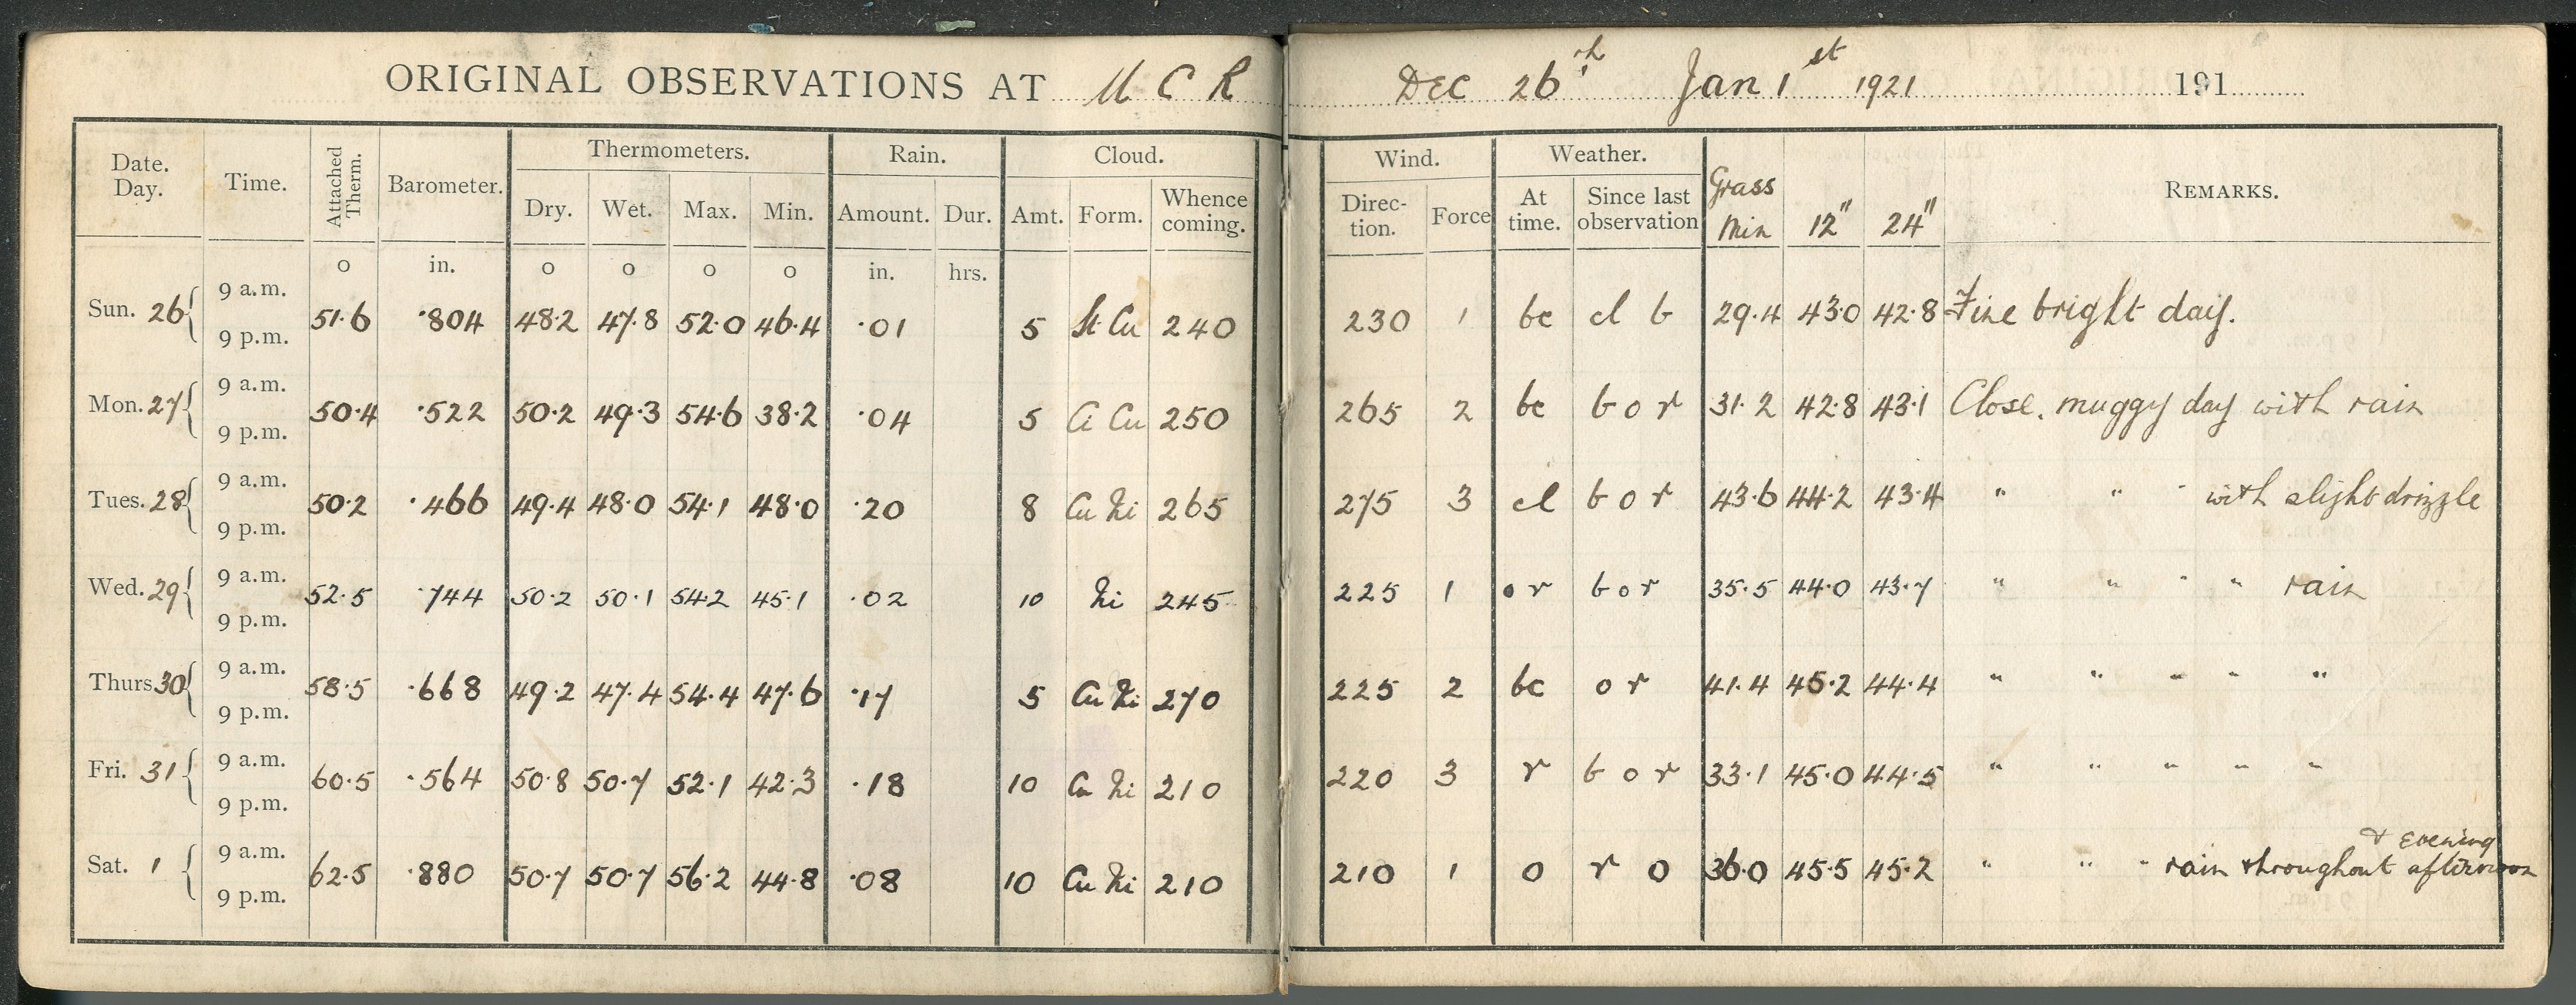 ORIGINAL OBSERVATIONS AT M C R DEC 26th Jan 1st 1921 191
Date. Day. Time. Attached Therm. Barometer. Thermometers. Rain. Cloud. Wind. Weather. Grass Min 12" 24" REMARKS.
Dry. Wet. Max. Min. Amount. Dur. Amt. Form. Whence coming. Direc- tion. Force At time. Since last observation
o in. o o o o in. hrs.
Sun. 26 9 a.m. 9 p.m. 51.6 .804 48.2 47.8 52.0 46.4 .01 5 St Cu 240 230 1 bc cl b 29.4 43.0 42.8 Fine bright day.
Mon. 27 9 a.m. 9 p.m. 50.4 .522 50.2 49.3 54.6 38.2 .04 5 Ci Cu 250 265 2 bc b o r 31.2 42.8 43.1 Close. muggy day with rain
Tues. 28 9 a.m. 9 p.m. 50.2 .466 49.4 48.0 54.1 48.0 .20 8 Cu Ni 265 275 3 cl b o r 43.6 44.2 43.4 " " " with slight drizzle
Wed. 29 9 a.m. 9 p.m. 52.5 .744 50.2 50.1 54.2 45.1 .02 10 Ni 245 225 1 o r b o r 35.5 44.0 43.7 " " " " rain
Thurs 30 9 a.m. 9 p.m. 58.5 .668 49.2 47.4 54.4 47.6 .17 5 Cu Ni 270 225 2 bc o r 41.4 45.2 44.4 " " " " "
Fri. 31 9 a.m. 9 p.m. 60.5 .564 50.8 50.7 52.1 42.3 .18 10 Cu Ni 210 220 3 r b o r 33.1 45.0 44.5 " " " " "
Sat. 1 9 a.m. 9 p.m. 62.5 .880 50.7 50.7 56.2 44.8 .08 10 Cu Ni 210 210 1 o r o 36.0 45.5 45.2 " " " rain throughout afternoon & evening